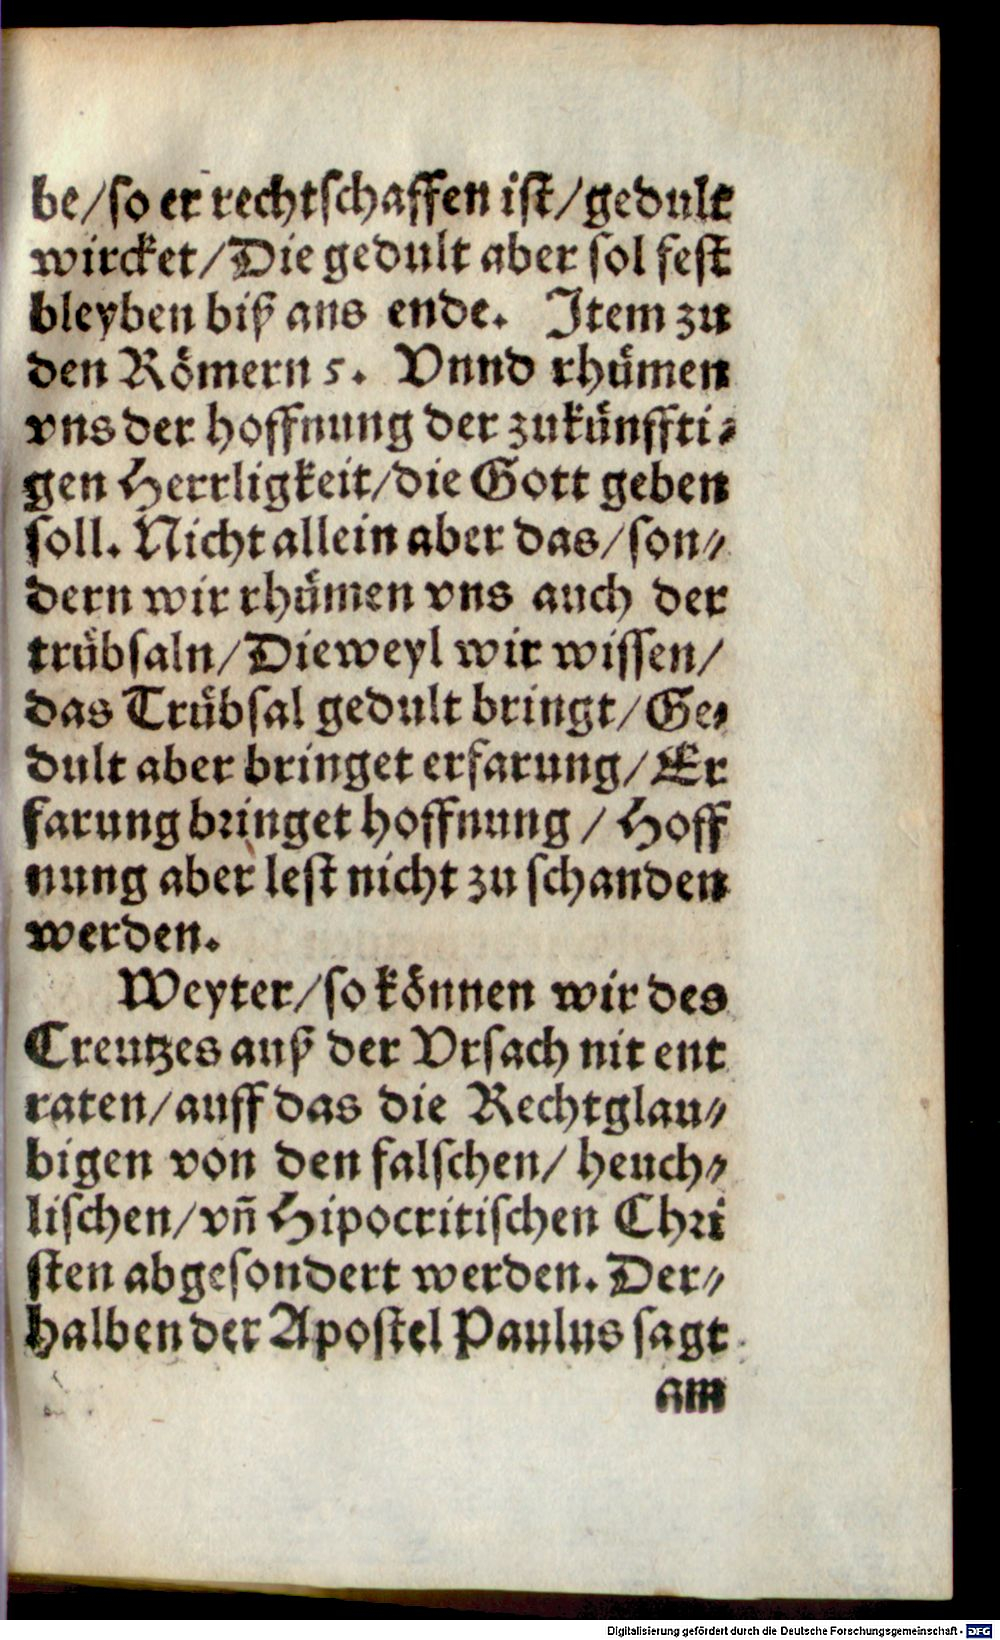 be/so er rechtschaffen ist/gedult
wircket/Die gedult aber sol fest
bleyben biß ans ende. Item zu
den Römern 5. Vnnd rhümen
vns der hoffnung der zukünffti-
gen Herrligkeit/die Gott geben
soll. Nicht allein aber das/son-
dern wir rhümen vns auch der
trübsaln/Dieweyl wir wissen/
das Trübsal gedult bringt/Ge-
dult aber bringet erfarung/Er
farung bringet hoffnung/Hoff
nung aber lest nicht zu schanden
werden.
Weyter/so können wir des
Creutzes auß der Vrsach nit ent
raten/auff das die Rechtglau-
bigen von den falschen/heuch-
lischen/vn̄ Hipocritischen Chri
sten abgesondert werden. Der-
halben der Apostel Paulus sagt
am
Digitalisierung gefördert durch die Deutsche Forschungsgemeinschaft - DFG